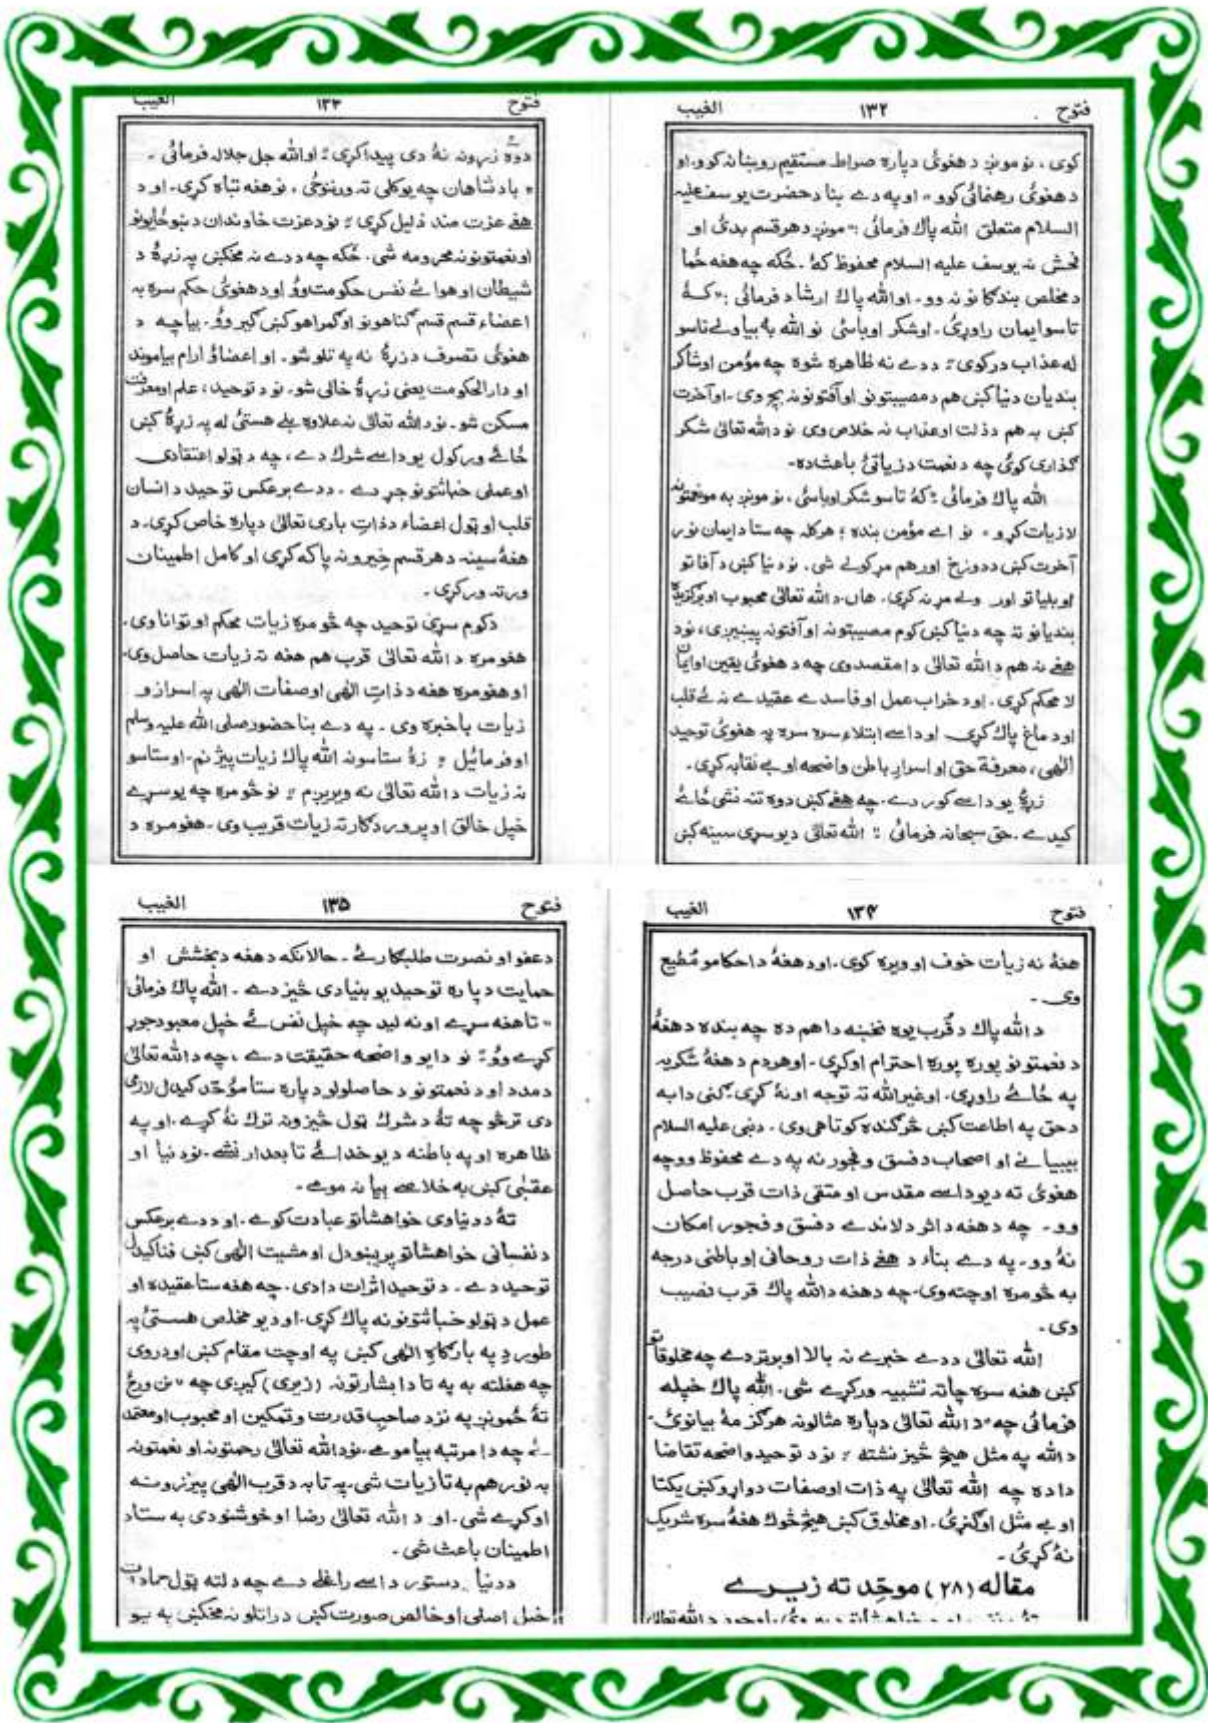 فتوح ۱۳۲ الغیب
کوی، نو مونږ د هغوئ دپاره صراط مستقیم روښانه کوو. او
د هغوئ رهنمائی کوو" او په دے بنا د حضرت یوسف علیه
السلام متعلق الله پاک فرمائی :" مونږ د هر قسم بدئ او
فحش نه یوسف علیه السلام محفوظ کړ. ځکه چه هغه ځما
د مخلص بندګانو نه وو. او الله پاک ارشاد فرمائی :" که
تاسو ایمان راوړئ. او شکر اوباسئ نو الله به بیا ولے تاسو
له عذاب درکوی" ددے نه ظاهره شوه چه مؤمن او شاکر
بندیان دنیا کښ هم د مصیبتونو او آفتونو نه بچ وی. او آخرت
کښ به هم د ذلت او عذاب نه خلاص وی نو د الله تعالیٰ شکر
گذاری کوئ چه د نعمت د زیاتئ باعث ده۔
الله پاک فرمائی "که تاسو شکر اوباسئ، نو مونږ به مو نعمتونه
لا زیات کړو" نو اے مؤمن بنده ؛ هرکله چه ستا د ایمان نور
آخرت کښ د دوزخ اور هم مړ کولے شی. نو دنیا کښ د آفاتو
او بلیاتو اور ولے مړ نه کړی. هاں د الله تعالیٰ محبوب او برگزیده
بندیانو ته چه دنیا کښ کوم مصیبتونه او آفتونه پیښیږی، نو د
هغے نه هم د الله تعالیٰ دا مقصد وی چه د هغوئ یقین او ایمان
لا محکم کړی. او د خراب عمل او فاسدے عقیدے نه ئے قلب
او دماغ پاک کړی. او داسے ابتلاء سره سره په هغوئ توحید
الٰهی، معرفة حق او اسرار باطن واضحه او بے نقابه کړی۔
زړۀ یو داسے کور دے. چه هغے کښ دوه تنه نشی ځائے
کیدے. حق سبحانه فرمائی " الله تعالیٰ د یو سړی سینه کښ
فتوح ۱۳۳ الغیب
دوه زړونه نۀ دی پیدا کړی" او الله جل جلاله فرمائی۔
" بادشاهان چه یو کلی ته ورننوځی، نو هغه تباه کړی. او د
هغے عزت مند ذلیل کړی" نو د عزت خاوندان د ښو ځایونو
او نعمتونو نه محرومه شی. ځکه چه ددے نه مخکښ په زړۀ د
شیطان او هوائے نفس حکومت وو او د هغوئ حکم سره به
اعضاء قسم قسم گناهونو او گمراهو کښ گیر وو. بیا چه د
هغوئ تصرف د زړۀ نه په تلو شو. او اعضاؤ ارام بیاموند
او دارالحکومت یعنی زړۀ خالی شو. نو د توحید، علم او معرفت
مسکن شو. نو د الله تعالیٰ نه علاوه بلے هستئ له په زړۀ کښ
ځائے ورکول یو داسے شرک دے، چه د ټولو اعتقادی
او عملی خباثتونو جړ دے. ددے برعکس توحید د انسان
قلب او ټول اعضاء د ذاتِ باری تعالیٰ دپاره خاص کړی. د
هغه سینه د هر قسم خیرو نه پاکه کړی او کامل اطمینان
ورته ورکړی۔
د کوم سړی توحید چه څومره زیات محکم او توانا وی.
هغومره د الله تعالیٰ قرب هم هغه ته زیات حاصل وی.
او هغومره هغه د ذاتِ الٰهی او صفات الٰهی په اسرارو
زیات باخبره وی۔ په دے بنا حضور صلی الله علیه وسلم
اوفرمائیل " زۀ ستاسو نه الله پاک زیات پیژنم. او ستاسو
نه زیات د الله تعالیٰ نه ویریږم" نو څومره چه یو سړے
خپل خالق او پروردگار ته زیات قریب وی. هغومره د
فتوح ۱۳۴ الغیب
هغۀ نه زیات خوف او ویره کوی. او د هغۀ د احکامو مُطیع
وی۔
د الله پاک د قُرب یوه نخښه دا هم ده چه بنده د هغۀ
د نعمتونو پوره پوره احترام اوکړی. او هر دم د هغۀ شکریه
په ځائے راوړی. او غیر الله ته توجه اونۀ کړی. گنی دا به
د حق په اطاعت کښ څرگنده کوتاهی وی. د نبی علیه السلام
بیبیانے او اصحاب د فسق و فجور نه په دے محفوظ وو چه
هغوئ ته د یو داسے مقدس او متقی ذات قرب حاصل
وو. چه د هغه د اثر د لاندے د فسق و فجور امکان
نۀ وو. په دے بناء د هغے ذات روحانی او باطنی درجه
به څومره اوچته وی. چه د هغه د الله پاک قرب نصیب
وی۔
الله تعالیٰ ددے خبرے نه بالا او برتر دے چه مخلوقاتو
کښ هغه سره چاته تشبیه ورکړے شی. الله پاک خپله
فرمائی چه "د الله تعالیٰ دپاره مثالونه هرگز مۀ بیانوئ.
د الله په مثل هیڅ څیز نشته" نو د توحید واضحه تقاضا
دا ده چه الله تعالیٰ په ذات او صفات دواړو کښ یکتا
او بے مثل اوگنړئ. او مخلوق کښ هیڅ څوک هغۀ سره شریک
نۀ کړئ۔
مقاله (۲۸) موحّد ته زیرے
فتوح ۱۳۵ الغیب
د عفو او نصرت طلبگار ئے. حالانکه د هغه د بخشش او
حمایت دپاره توحید یو بنیادی څیز دے. الله پاک فرمائی
" تا هغه سړے اونه لید چه خپل نفس ئے خپل معبود جوړ
کړے وو" نو دا یو واضحه حقیقت دے، چه د الله تعالیٰ
د مدد او د نعمتونو د حاصلولو دپاره ستا مؤحّد کیدل لازمی
دی ترڅو چه تۀ د شرک ټول څیزونه ترک نۀ کړے. او په
ظاهره او په باطنه د یو خدائے تابعدار نشے. نو دنیا او
عقبٰی کښ به خلاصے بیا نه مومے۔
تۀ د دنیاوی خواهشاتو عبادت کوے. او ددے برعکس
د نفسانی خواهشاتو پریښودل او مشیت الٰهی کښ فنا کیدل
توحید دے. د توحید اثرات دا دی. چه هغه ستا عقیده او
عمل د ټولو خباثتونو نه پاک کړی. او د یو مخلص هستئ په
طور دِ په بارگاهِ الٰهی کښ په اوچت مقام کښ اودروی
چه هغلته به په تا دا بشارتونه (زیری) کیږی چه "نن ورځ
تۀ ځمونږ په نزد صاحبِ قدرت و تمکین او محبوب او معتمد
ئے چه دا مرتبه بیامومے. نو د الله تعالیٰ رحمتونه او نعمتونه
به نور هم په تا زیات شی. په تا به د قرب الٰهی پیرزونه
اوکړے شی. او د الله تعالیٰ رضا او خوشنودی به ستا د
اطمینان باعث شی۔
د دنیا دستور داسے راغلے دے چه دلته ټول جمادات
خپل اصلی او خالص صورت کښ د راتلو نه مخکښ په یو